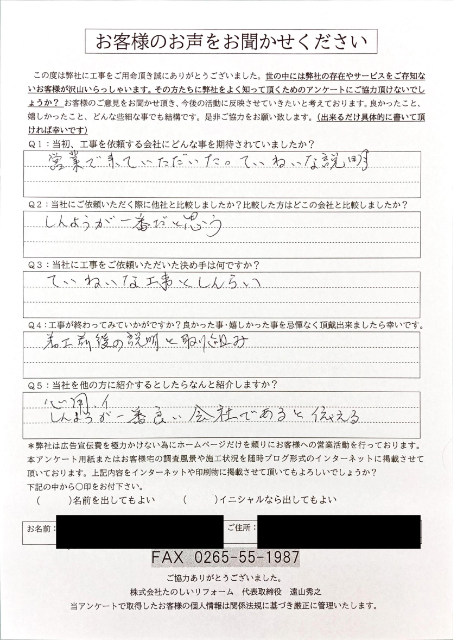 お客様のお声をお聞かせください
この度は弊社に工事をご用命頂き誠にありがとうございました。世の中には弊社の存在やサービスをご存知な
いお客様が沢山いらっしゃいます。その方たちに弊社をよく知って頂くためのアンケートにご協力頂けないでし
ょうか? お客様のご意見をお聞かせ頂き、今後の活動に反映させていきたいと考えております。良かったこと、
嬉しかったこと、どんな些細な事でも結構です。是非ご協力をお願い致します。(出来るだけ具体的に書いて頂
ければ幸いです)
Q1:当初、工事を依頼する会社にどんな事を期待されていましたか?
営業で来ていただいた。ていねいな説明
Q2:当社にご依頼いただく際に他社と比較しましたか?比較した方はどこの会社と比較しましたか?
しんようが一番だと思う
Q3:当社に工事をご依頼いただいた決め手は何ですか?
ていねいな工事としんらい
Q4:工事が終わってみていかがですか?良かった事・嬉しかった事を忌憚なく頂戴出来ましたら幸いです。
着工前後の説明と取り組み
Q5:当社を他の方に紹介するとしたらなんと紹介しますか?
しんようが一番良い会社であると伝える
*弊社は広告宣伝費を極力かけない為にホームページだけを頼りにお客様への営業活動を行っております。
本アンケート用紙またはお客様宅の調査風景や施工状況を随時ブログ形式のインターネットに掲載させて
頂いております。上記内容をインターネットや印刷物に掲載させて頂いてもよろしいでしょうか?
下記の中から〇印をお付下さい。
( )名前を出してもよい ( )イニシャルなら出してもよい
お名前: ご住所:
FAX 0265-55-1987
ご協力ありがとうございました。
株式会社たのしいリフォーム 代表取締役 遠山秀之
当アンケートで取得したお客様の個人情報は関係法規に基づき厳正に管理いたします。